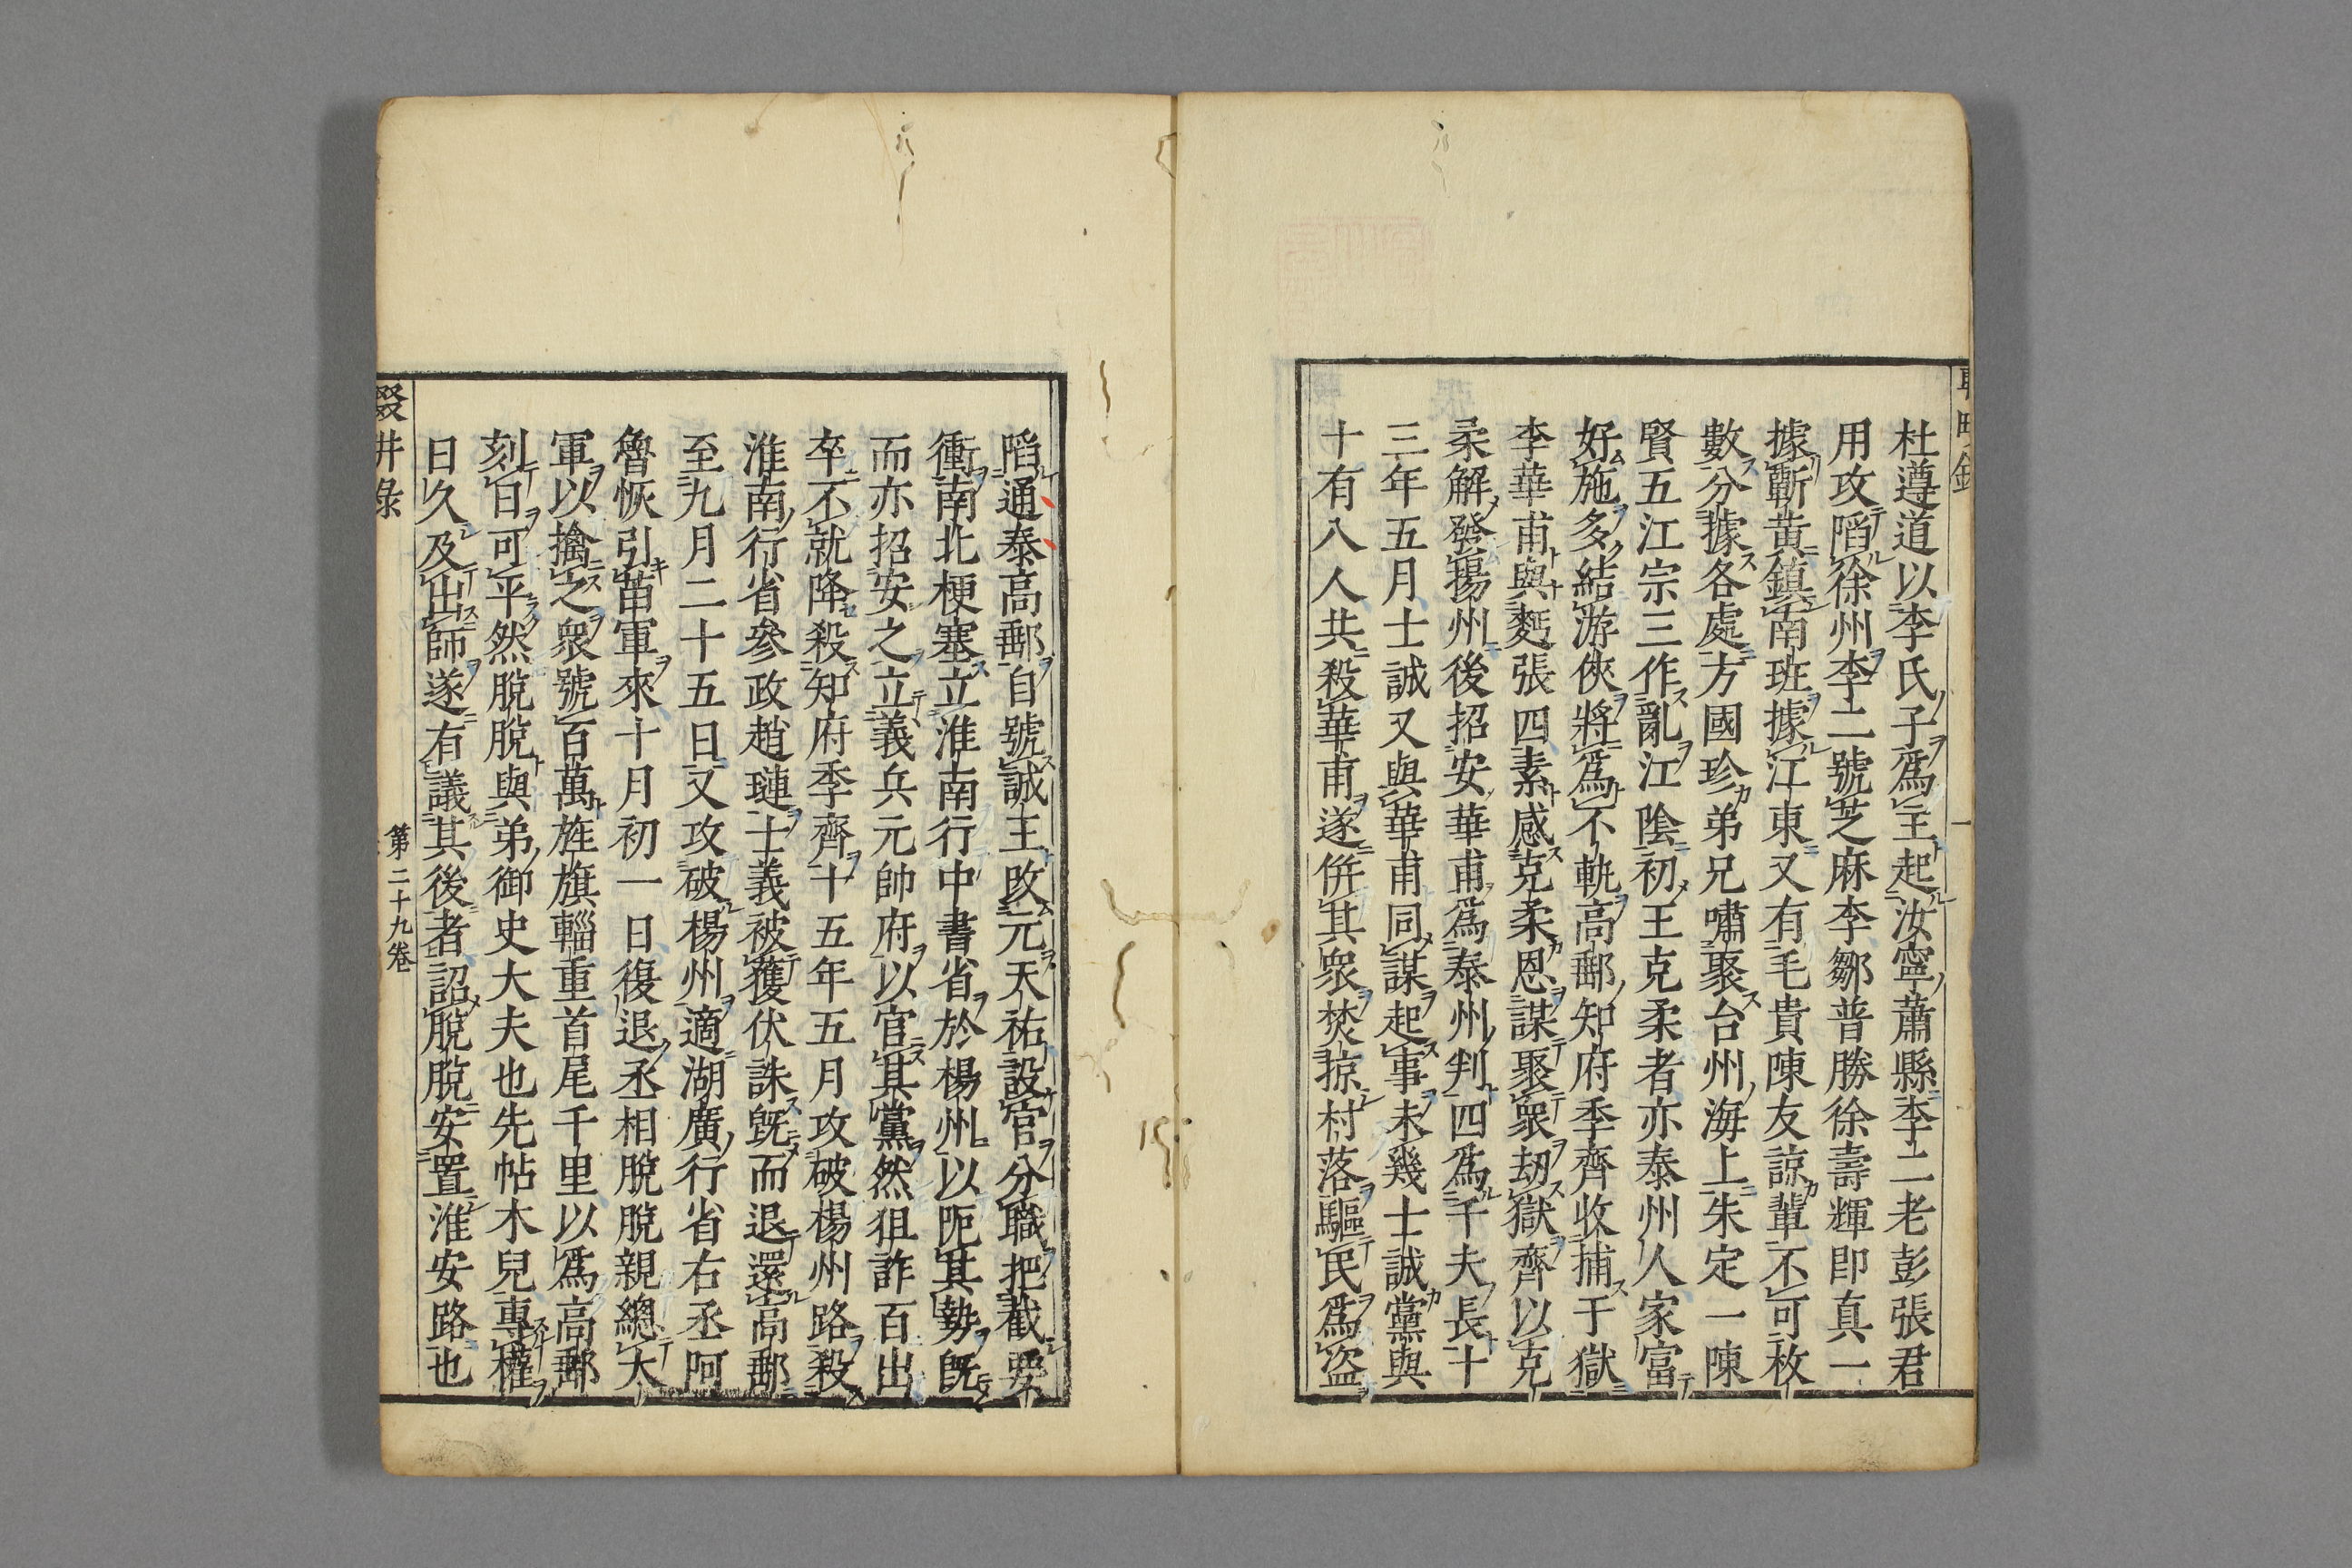 杜遵道以李氏子爲主起汝寧蕭縣李二老彭張君
用攻陷徐州李二號芝麻李鄒普勝徐壽輝即真一
據蘄黄鎮南班據江東又有毛貴陳友諒輩不可枚
數分據各處方國珍弟兄嘯聚台州海上朱定一陳
賢五江宗三作亂江陰初王克柔者亦泰州人家富
好施多結游俠將爲不軌高郵知府李齊收捕于獄
李華甫與麪張四素感克柔恩謀聚衆劫獄齊以克
柔解發揚州後招安華甫爲泰州判四爲千夫長十
三年五月士誠又與華甫同謀起事未幾士誠黨與
十有八人共殺華甫遂併其衆焚掠村落驅民爲盗
陷通泰高郵自號誠王改元天祐設官分職把截要
衝南北梗塞立淮南行中書省於楊州以阨其勢既
而亦招安之立義兵元帥府以官其黨然狙詐百出
卒不就降殺知府李齊十五年五月攻破楊州路殺
淮南行省參政趙璉士義被獲伏誅既而退還高郵
至九月二十五日又攻破楊州適湖廣行省右丞阿
魯恢引苗軍來十月初一日復退丞相脫脫親總大
軍以擒之衆號百萬旌旗輜重首尾千里以爲高郵
刻日可平然脫脫與弟御史大夫也先帖木兒專權
日久及出師遂有議其後者詔脫脫安置淮安路也
輟畊錄
第二十九卷